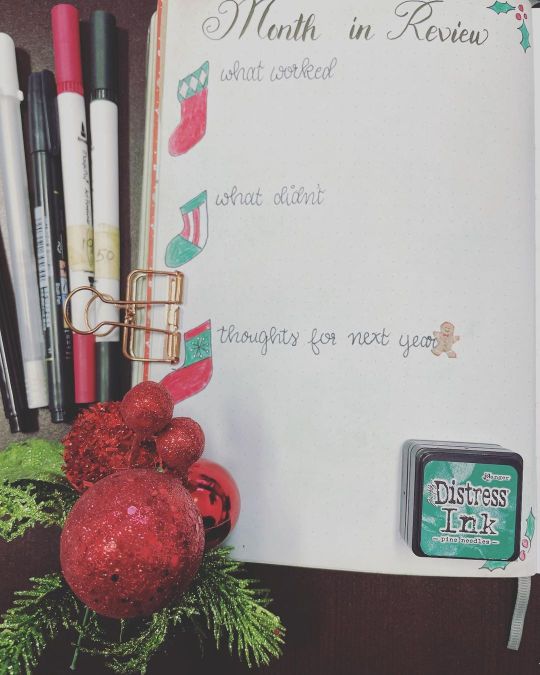 Month in Review
what worked
what didn't
thoughts for next year
Ranger
Distress
Ink
pine needles